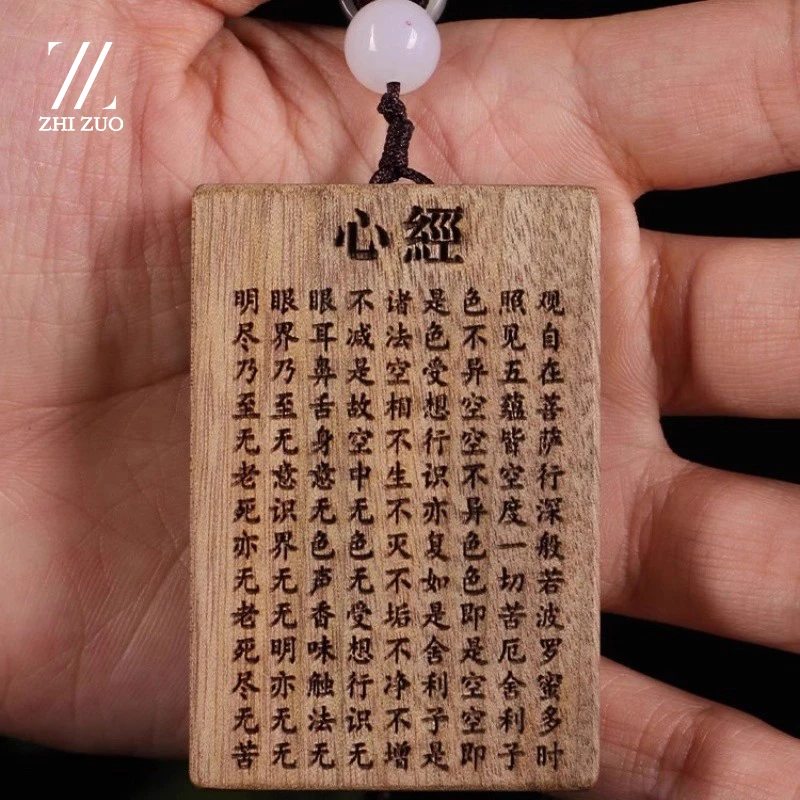 ZHI ZUO
心經
观自在菩萨行深般若波罗蜜多时
照见五蕴皆空度一切苦厄舍利子
色不异空空不异色色即是空空即
是色受想行识亦复如是舍利子是
诸法空相不生不灭不垢不净不增
不减是故空中无色无受想行识无
眼耳鼻舌身意无色声香味触法无
眼界乃至无意识界无无明亦无无
明尽乃至无老死亦无老死尽无苦